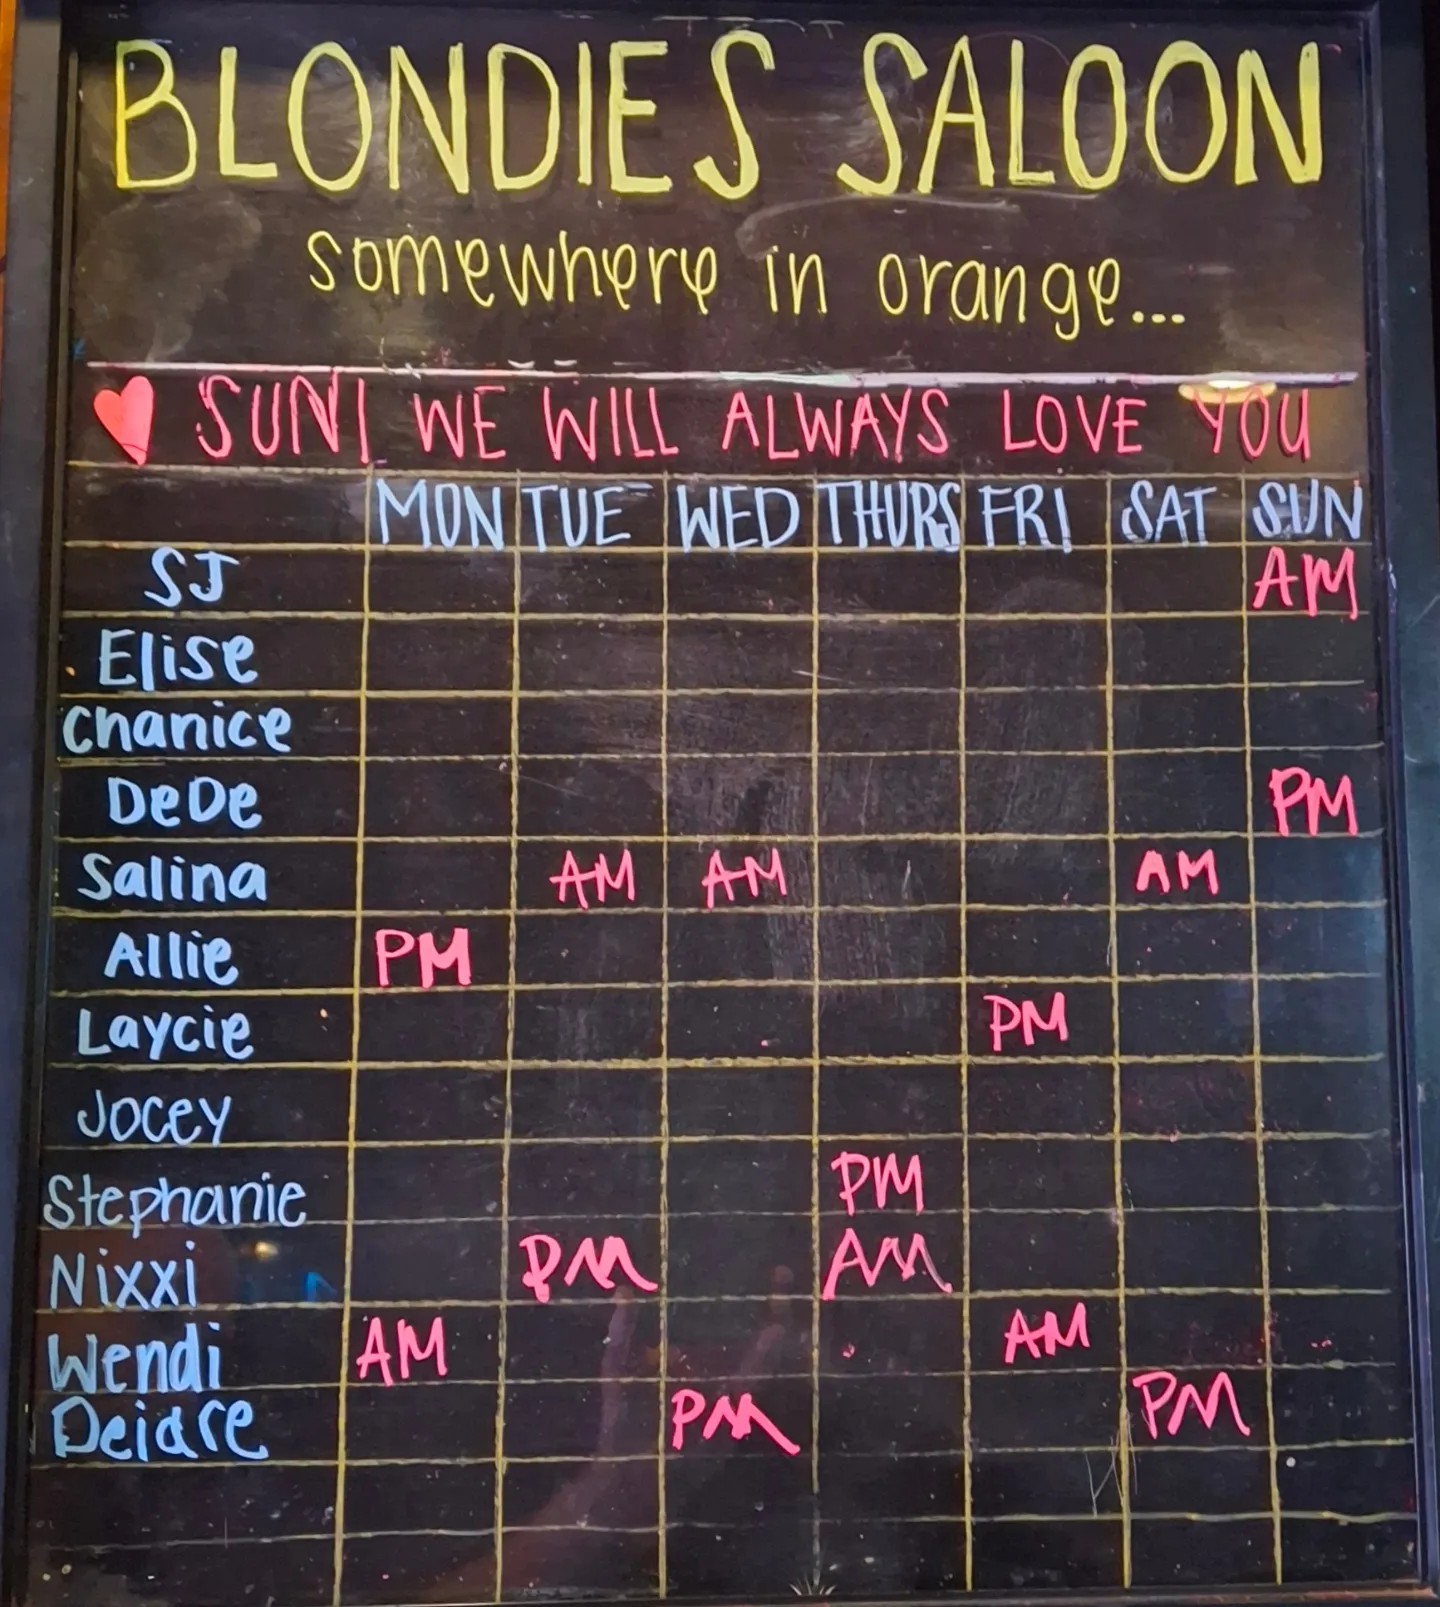 BLONDIES SALOON
somewhere in orange...
SUNI WE WILL ALWAYS LOVE YOU
MON TUE WED THURS FRI SAT SUN
SJ AM
Elise
Chanice
DeDe PM
Salina AM AM AM
Allie PM
Laycie PM
Jocey
Stephanie PM
Nixxi PM AM
Wendi AM AM
Deidre PM PM